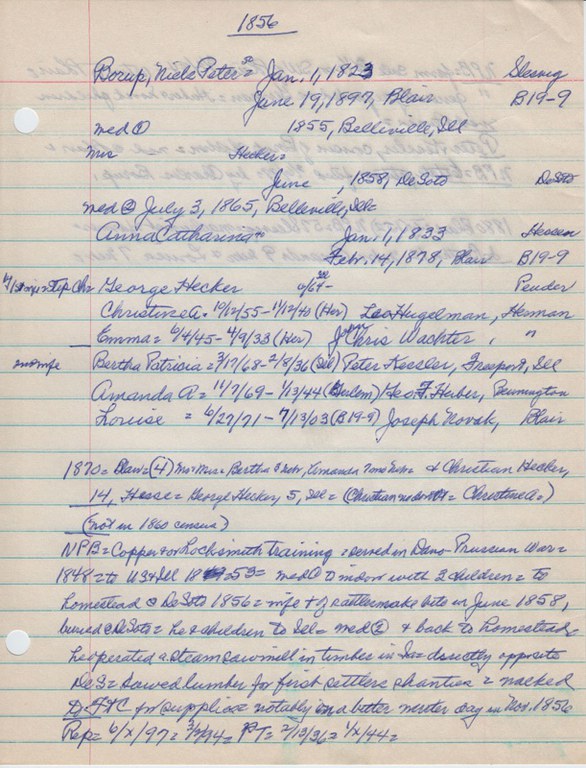 1856
Borup, Niels Peter = Jan. 1, 1823 Slesvig
June 19, 1897, Blair B19-9
med ① 1855, Belleville, Ill
Mrs Hecker =
June , 1858, DeSoto DeSoto
med ② July 3, 1865, Belleville, Ill =
Anna Catharina Jan. 7, 1833 Hessen
Febr. 14, 1878, Blair B19-9
Step Ch = George Hecker Pender
Christine A. 10/12/55 - 11/12/43 (Her) Leo Hugelman, Herman
Emma = 6/4/45 - 4/9/33 (Her) Chris Wachter, "
Bertha Patricia = 3/17/68 - 2/8/36 (Ill) Peter Kessler, Freeport, Ill
Amanda A = 11/7/69 - 1/13/44 Geo F. Huber, Bennington
Louise = 6/27/71 - 7/13/03 (B19-9) Joseph Novak, Blair
1870 = Blair = (4) Mr + Mrs = Bertha 2 Nebr, Amanda 7mo Nebr = & Christian Hecker,
14, Hesse = George Hecker, 5, Ill = (Christian = Christine A =)
(not in 1860 census)
NPB = Copper or Locksmith training = served in Dano Prussian War =
1848 = to US + Ill 1853 = med ① widow with 2 children = to
homestead @ DeSoto 1856 = wife + of rattlesnake bite in June 1858,
buried @ DeSoto = he & children to Ill = med ② & back to homestead,
he operated a steam sawmill in timber in Ia = directly opposite
DeS = sawed lumber for first settlers shanties = walked
D - FtC for supplies = notably on a bitter winter day in Nov. 1856
Rep = 6/x/97 = 2/2/94 = PT = 2/13/36 = 1/x/44 =